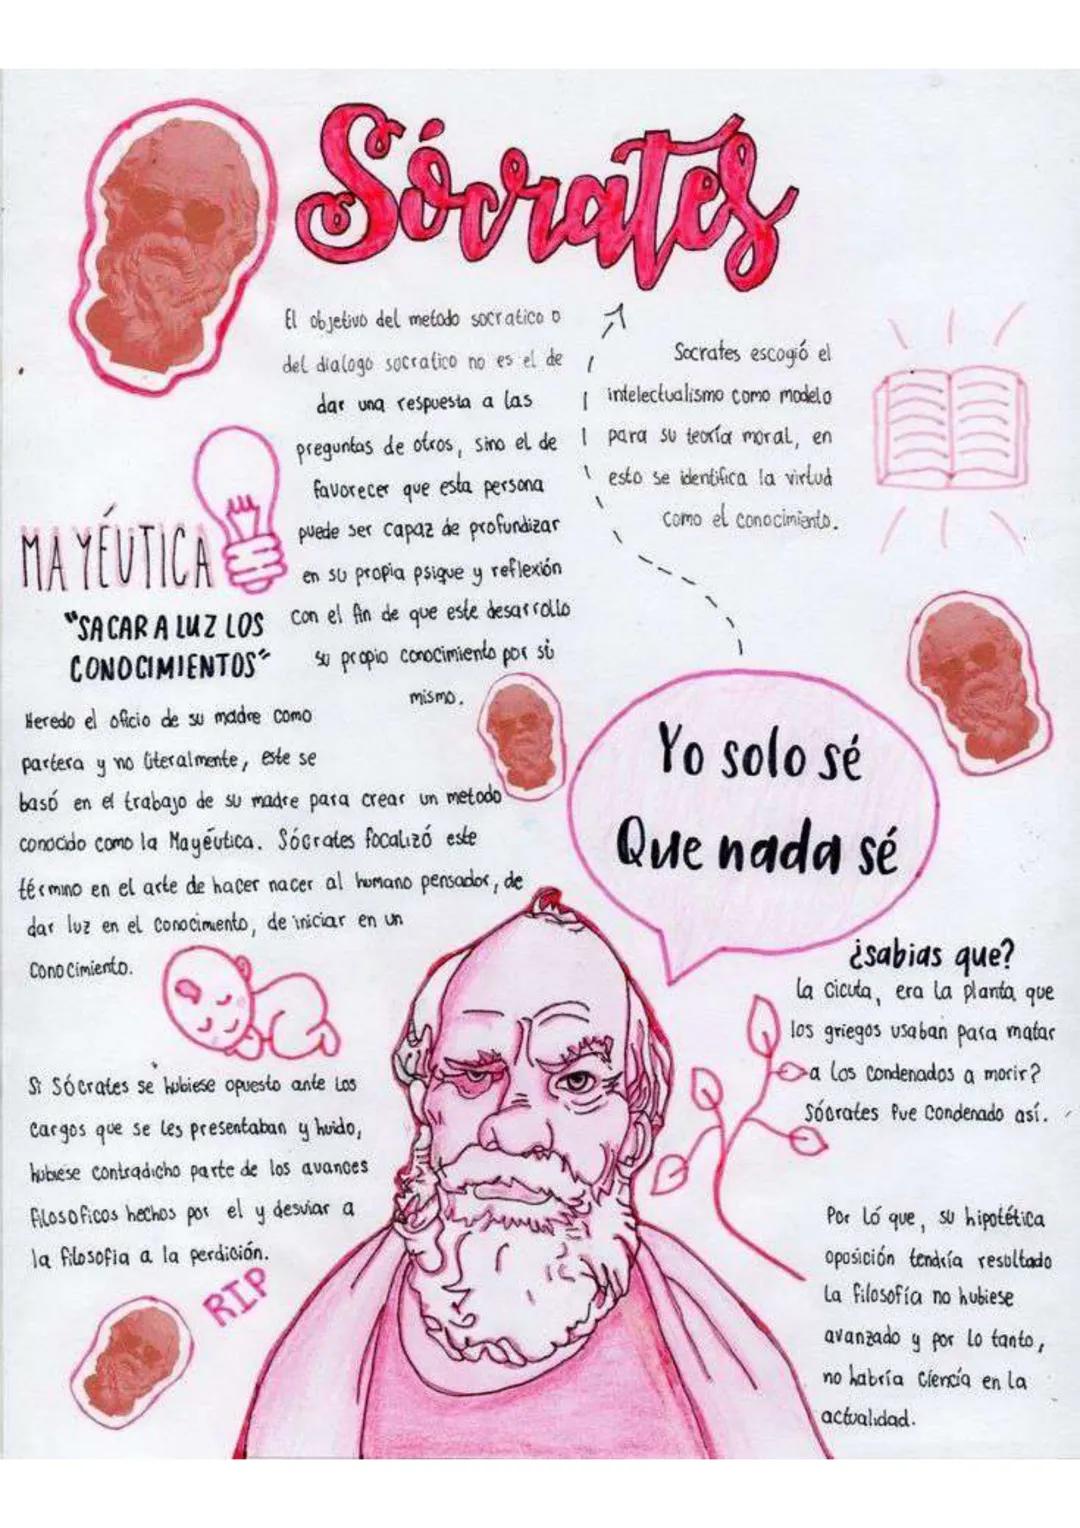 Sócrates
El objetivo del metodo socratico o
del dialogo socratico no es el de
dar una respuesta a las
preguntas de otros, sino el de
favorecer que esta persona
puede ser capaz de profundizar
en su propia psique y reflexión
con el fin de que este desarrollo
su propio conocimiento por si
mismo.
Socrates escogió el
intelectualismo como modelo
para su teoría moral, en
esto se identifica la virtud
como el conocimiento.
MAYÉUTICA
"SACAR A LUZ LOS
CONOCIMIENTOS"
Heredo el oficio de su madre como
partera y no literalmente, este se
basó en el trabajo de su madre para crear un metodo
conocido como la Mayéutica. Sócrates focalizó este
término en el arte de hacer nacer al humano pensador, de
dar luz en el conocimento, de iniciar en un
conocimiento.
Yo solo sé
Que nada sé
¿sabias que?
La cicuta, era la planta que
los griegos usaban para matar
a los condenados a morir?
Sócrates fue condenado así.
Si Sócrates se hubiese opuesto ante los
cargos que se les presentaban y huido,
hubiese contradicho parte de los avances
filosoficos hechos por el y desviar a
la filosofia a la perdición.
RIP
Por ló que, su hipotética
oposición tendría resultado
la filosofía no hubiese
avanzado y por lo tanto,
no habría ciencia en la
actualidad.